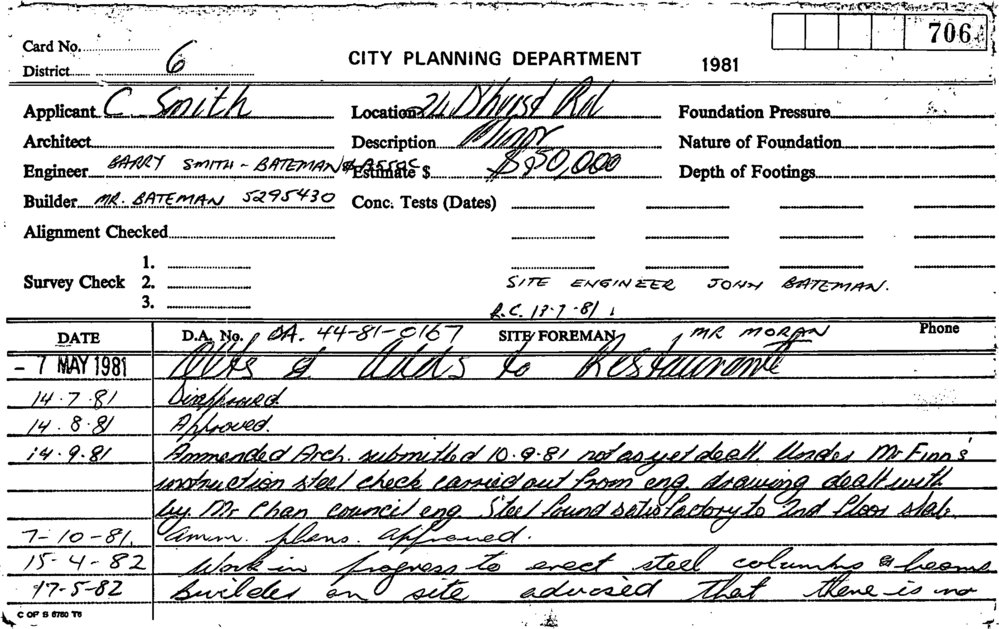 706
Card No.
District 6
CITY PLANNING DEPARTMENT 1981
Applicant C Smith Location 24 D'hurst Rd Foundation Pressure
Architect Description Minor Nature of Foundation
Engineer BARRY SMITH - BATEMAN & ASSOC Estimate $ $850,000 Depth of Footings
Builder MR. BATEMAN 5295430 Conc. Tests (Dates)
Alignment Checked
1.
Survey Check 2.
3.
SITE ENGINEER JOHN BATEMAN.
R.C. 13-7-81
DATE D.A. No. DA. 44-81-0167 SITE FOREMAN MR MORAN Phone
- 7 MAY 1981 Alts & Adds to Restaurant
14.7.81 Disapproved
14.8.81 Approved.
14.9.81 Ammended Arch. submitted 10.9.81 not as yet dealt. Under Mr Finn's
instruction steel check carried out from eng. drawing dealt with
by Mr Chan council eng. Steel found satisfactory to 2nd floor slab.
7-10-81. Amm. plans. approved.
15-4-82 Work in progress to erect steel columns & beams
17-5-82 Builder on site advised that there is no
C OF S 6750 T6